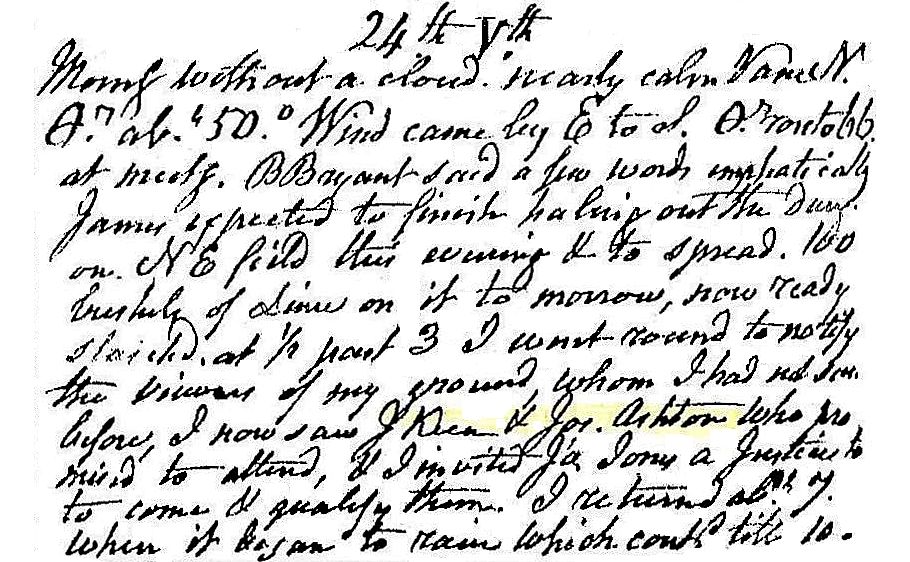 24th Vth
Morng without a cloud. nearly calm Vane N.
ab.t 50.° Wind came by E to S. to 66.
at meetg. B Bryant said a few words emphatically
James expected to finish haling out the dung.
on. N E field this evening & to spread. 100
bushels of Lime on it to morrow, now ready
slacked. at ½ past 3 I went round to notify
the viewers of my ground, whom I had not seen
before, I now saw J Keen & Jos. Ashton who pro
mised to attend, & I invited Ja Jones a Justice to
to come & qualify them. I returned ab.t 7.
when it began to rain which cont.d till 10.